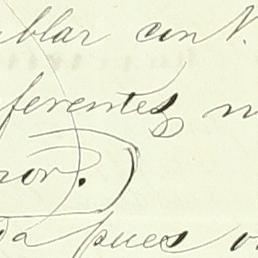 ablar con V.
iferentes n
nor.)
da pues o